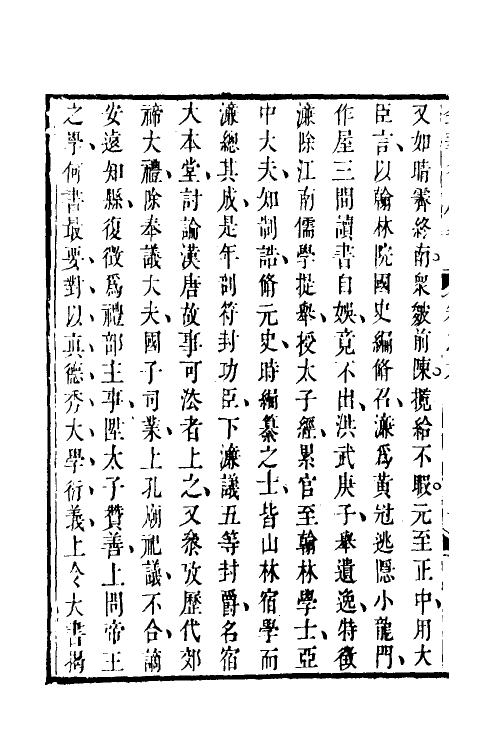 又如晴霽終南衆皺前陳攬給不暇元至正中用大
臣言以翰林院國史編脩召濂爲黃冠逃隱小龍門
作屋三間讀書自娛竟不出洪武庚子舉遺逸特徵
濂除江南儒學提舉授太子經累官至翰林學士亞
中大夫知制誥脩元史時編纂之士皆山林宿學而
濂總其成是年剖符封功臣下濂議五等封爵名宿
大本堂討論漢唐故事可法者上之又叅攷歷代郊
禘大禮除奉議大夫國子司業上孔廟祀議不合謫
安遠知縣復徵爲禮部主事陞太子贊善上問帝王
之學何書最要對以真德秀大學衍義上令大書揭